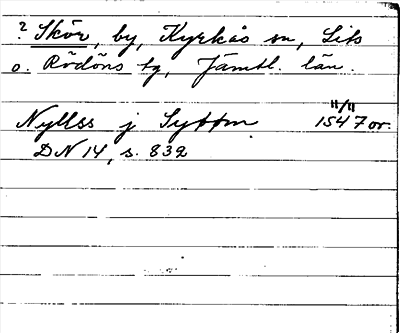 ? Skör, by, Kyrkås sn, Lits
o. Rödöns tg, Jämtl. län.
11/11
Nyllss j Syttm 1547 or.
DN 14, s. 832